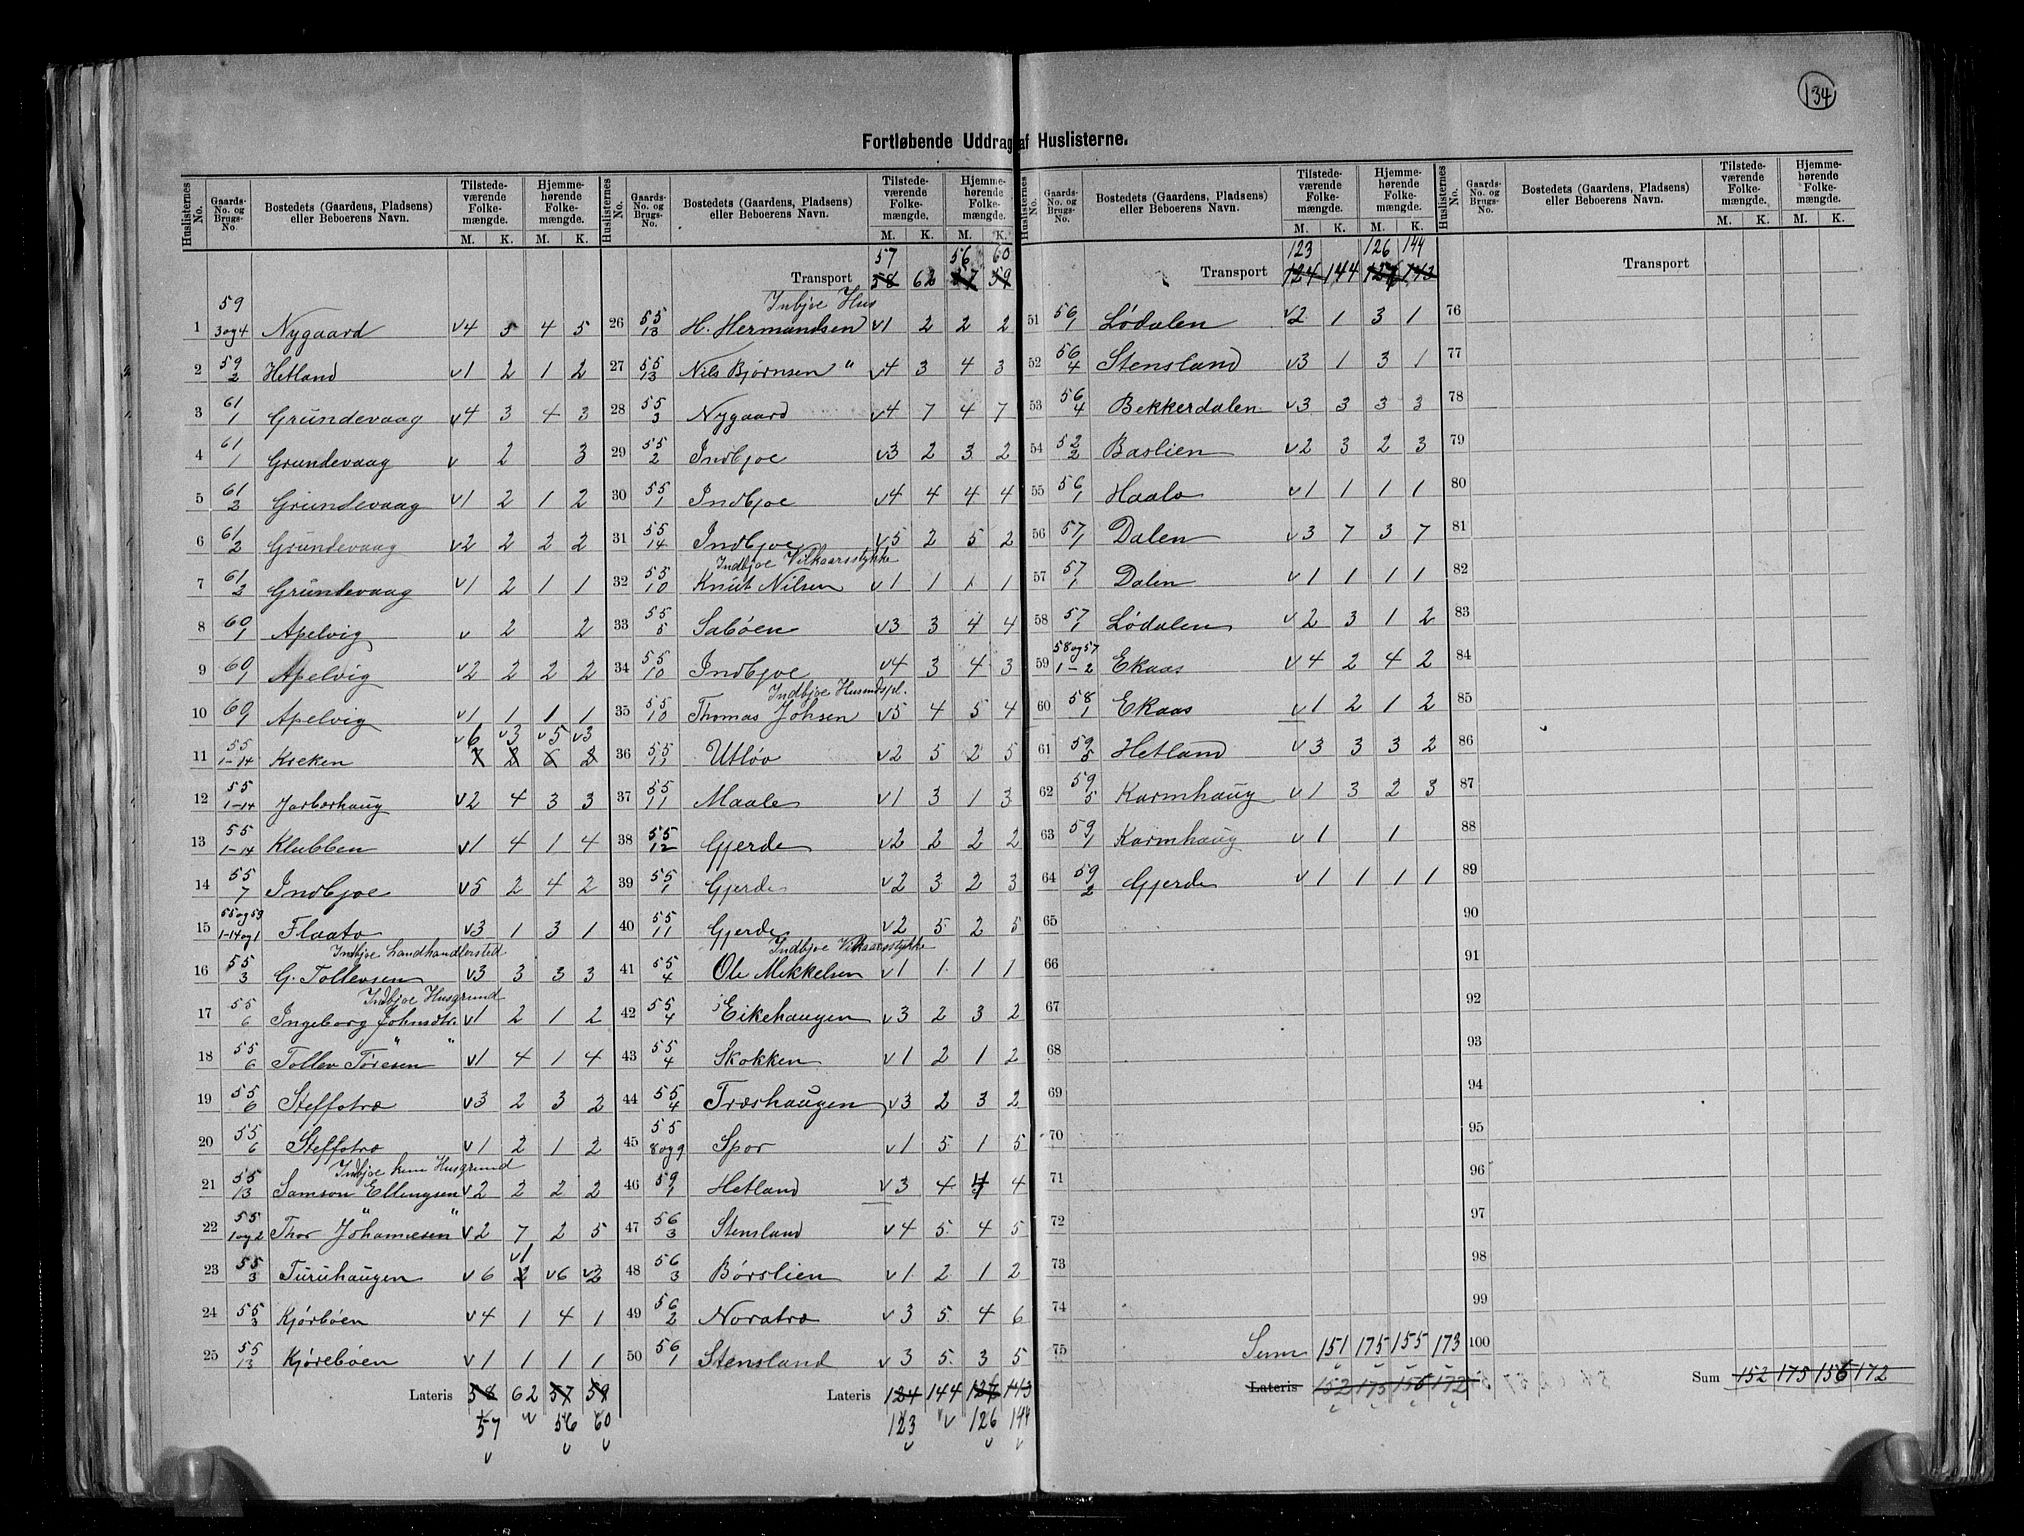 134
Fortløbende Uddrag af Huslisterne.
Huslisternes No. Gaards-No. og Brugs-No. Bostedets (Gaardens, Pladsens) eller Beboerens Navn. Tilstedeværende Folkemængde. M. K. Hjemmehørende Folkemængde. M. K.
59
1 3og4 Nygaard v4 5 4 5
2 59/2 Hetland v1 2 1 2
3 61/1 Grundevaag v4 3 4 3
4 61/1 Grundevaag v 2 3
5 61/2 Grundevaag v1 2 1 2
6 61/2 Grundevaag v2 2 2 2
7 61/2 Grundevaag v1 2 1 1
8 60/1 Apelvig v 2 2
9 60/1 Apelvig v2 2 2 2
10 60/1 Apelvig v1 1 1 1
v6 v3 v5 v3
11 55/1-14 Kreken 7 2 6 2
12 55/1-14 Jarberhaug v2 4 3 3
13 55/1-14 Klubben v1 4 1 4
14 55/7 Indbjoe v5 2 4 2
15 55og59/1-14og1 Flaato v3 1 3 1
Indbjoe Landhandlersted
16 55/3 G. Tollevsen v3 3 3 3
Indbjoe Husgrund
17 55/6 Ingeborg Johnsdtr. v1 2 1 2
18 55/6 Tollev Toresen " " v1 4 1 4
19 55/6 Steffotræ v3 2 3 2
20 55/6 Steffotræ v1 2 1 2
Indbjoe hun Husgrund
21 55/13 Samson Ellingsen v2 2 2 2
22 55/1og2 Thor Johannesen " " v2 7 2 5
v1
23 55/3 Turuhaugen v6 2 v6 v2
24 55/3 Kjørbøen v4 1 4 1
25 55/13 Kjørebøen v1 1 1 1
Lateris 58 62 57 59
57 v 56 60
Huslisternes No. Gaards-No. og Brugs-No. Bostedets (Gaardens, Pladsens) eller Beboerens Navn. Tilstedeværende Folkemængde. M. K. Hjemmehørende Folkemængde. M. K.
57 56 60
Transport 58 62 57 59
Inbjoe Hus
26 55/13 H. Hermundsen v1 2 2 2
27 55/13 Nils Bjørnsen " v4 3 4 3
28 55/3 Nygaard v4 7 4 7
29 55/2 Indbjoe v3 2 3 2
30 55/1 Indbjoe v4 4 4 4
31 55/14 Indbjoe v5 2 5 2
Indbjoe Vilkaarsstykke
32 55/10 Knut Nilsen v1 1 1 1
33 55/5 Sabøen v3 3 4 4
34 55/10 Indbjoe v4 3 4 3
Indbjoe Husmdspl.
35 55/10 Thomas Johsen v5 4 5 4
36 55/11 Utløo v2 5 2 5
37 55/11 Maale v1 3 1 3
38 55/12 Gjerde v2 2 2 2
39 55/1 Gjerde v2 3 2 3
40 55/11 Gjerde v2 5 2 5
Indbjoe Vilkaarsstykke
41 55/4 Ole Mikkelsen v1 1 1 1
42 55/4 Eikehaugen v3 2 3 2
43 55/4 Skokken v1 2 1 2
44 55/4 Træshaugen v3 2 3 2
45 55/8og9 Spor v1 5 1 5
46 59/1 Hetland v3 4 4 4
47 56/3 Stensland v4 5 4 5
48 56/3 Børslien v1 2 1 2
49 56/2 Noratræ v3 5 4 6
50 56/1 Stensland v3 5 3 5
Lateris 124 144 127 143
123 v 126 144
Huslisternes No. Gaards-No. og Brugs-No. Bostedets (Gaardens, Pladsens) eller Beboerens Navn. Tilstedeværende Folkemængde. M. K. Hjemmehørende Folkemængde. M. K.
123 126 144
Transport 124 144 127 143
51 56/1 Lødalen v2 1 3 1
52 56/4 Stensland v3 1 3 1
53 56/4 Bekkerdalen v3 3 3 3
54 52/2 Baslien v2 3 2 3
55 56/1 Haalo v1 1 1 1
56 57/1 Dalen v3 7 3 7
57 57/1 Dalen v1 1 1 1
58 57/1 Lødalen v2 3 1 2
59 58og57/1-2 Ekaas v4 2 4 2
60 58/1 Ekaas v1 2 1 2
61 59/5 Hetland v3 3 3 2
62 59/5 Karmhaug v1 3 2 3
63 59/1 Karmhaug v1 1
64 59/2 Gjerde v1 1 1 1
65
66
67
68
69
70
71
72
73
74
75 Sum 151 175 155 173
Lateris 152 175 156 172
Huslisternes No. Gaards-No. og Brugs-No. Bostedets (Gaardens, Pladsens) eller Beboerens Navn. Tilstedeværende Folkemængde. M. K. Hjemmehørende Folkemængde. M. K.
Transport
76
77
78
79
80
81
82
83
84
85
86
87
88
89
90
91
92
93
94
95
96
97
98
99
100
Sum 152 175 156 172